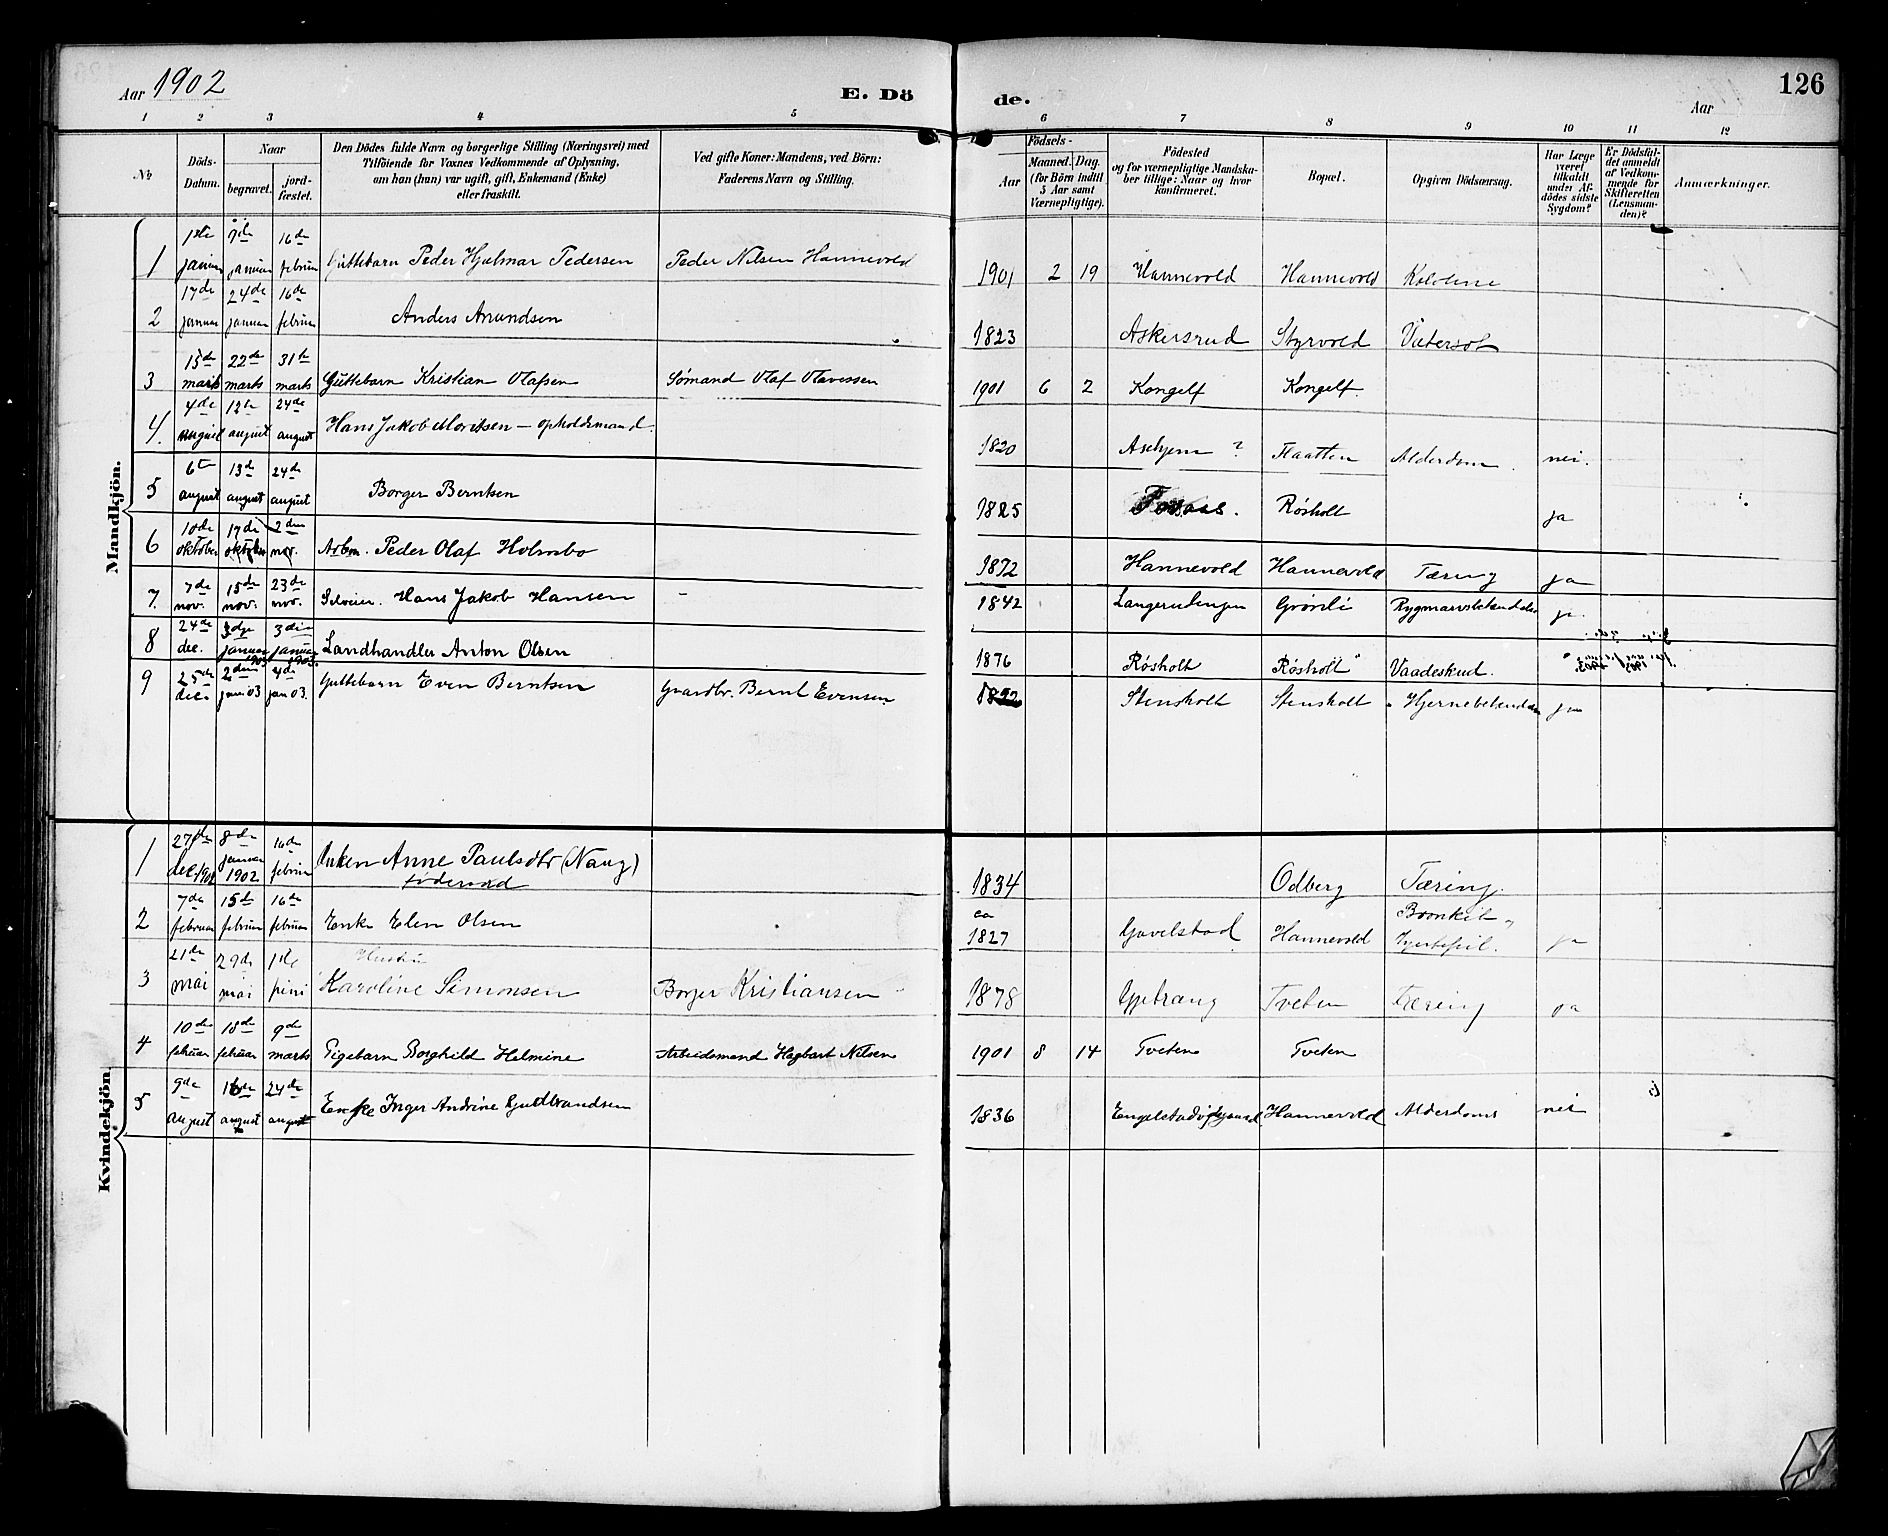 Aar 1902
E. Dö de.
Aar
126
1 2 3 4 5 6 7 8 9 10 11 12
No
Döds-Datum.
Naar
begravet.
jord-fæstet.
Den Dödes fulde Navn og borgerlige Stilling (Næringsvei) med
Tilföiende for Voxnes Vedkommende af Oplysning,
om han (hun) var ugift, gift, Enkemand (Enke)
eller fraskilt.
Ved gifte Koner: Mandens, ved Börn:
Faderens Navn og Stilling.
Födsels-
Aar
Maaned. Dag.
(for Börn indtil
5 Aar samt
Værnepligtige).
Födested
og for værnepligtige Mandska-
ber tillige: Naar og hvor
konfirmeret.
Bopæl.
Opgiven Dödsaarsag.
Har Læge
været
tilkaldt
under Af-
dödes sidste
Sygdom?
Er Dödsfal-
det anmeldt
af Vedkom-
mende for
Skifteretten
(Lensman-
den)?
Anmærkninger.
Mandkjön.
1 1ste januar 9de januar 16de februar Guttebarn Peder Hjalmar Pedersen Peder Nilsen Hannevold 1901 2 19 Hannevold Hannevold
2 17de januar 24de januar 16de februar Anders Amundsen 1823 Askersrud Styrvold Vatersot
3 15de marts 22de marts 31te marts Guttebarn Kristian Olafsen Sømand Olaf Olavessen 1901 6 2 Kongelf Kongelf
4. 4de august 12te august 24de august Hans Jakob Moritsen – opholdsmand. 1820 Askjem ? Flaatten Alderdom. nei.
5 6te august 13de august 24de august Borger Berntsen 1825 Røsholt ja
6 10de oktober 17de oktober 2den nov. Arbm. Peder Olaf Holmsbo 1872 Hannevold Hannevold Tæring ja
7. 7de nov. 15de nov. 23de nov. Selveier. Hans Jakob Hansen – 1842 Grønli ja
8 24de dec. 3dje januar 1903 3die januar 1903. Landhandler Anton Olsen 1876 Røsholt Røsholt Vaadeskud.
9 25de dec. 2den jan 03 4de jan 03. Guttebarn Even Berntsen Gaardbr. Bernt Evensen. Stensholt Stensholt ja
Kvindekjön.
1 27de dec 1901 8de januar 1902 16de februar Enken Anne Paulsdtr (Naug) føderaad 1834 Odberg Tæring.
2 7de februar 15de februar 16de februar Enke Elen Olsen ca 1827 Gavelstad Hannevold ja
3 21de mai 29de mai 1ste juni Hustru Karoline Simonsen Borger Kristiansen 1878 Tveten Tæring ja
4 10de februar 18de februar 9de marts Pigebarn Borghild Helmine Arbeidsmand Hagbart Nilsen 1901 8 14 Tveten Tveten
5 9de august 16de august 24de august Enke Inger Andrine Guldbrandsen 1836 Hannevold Alderdoms nei